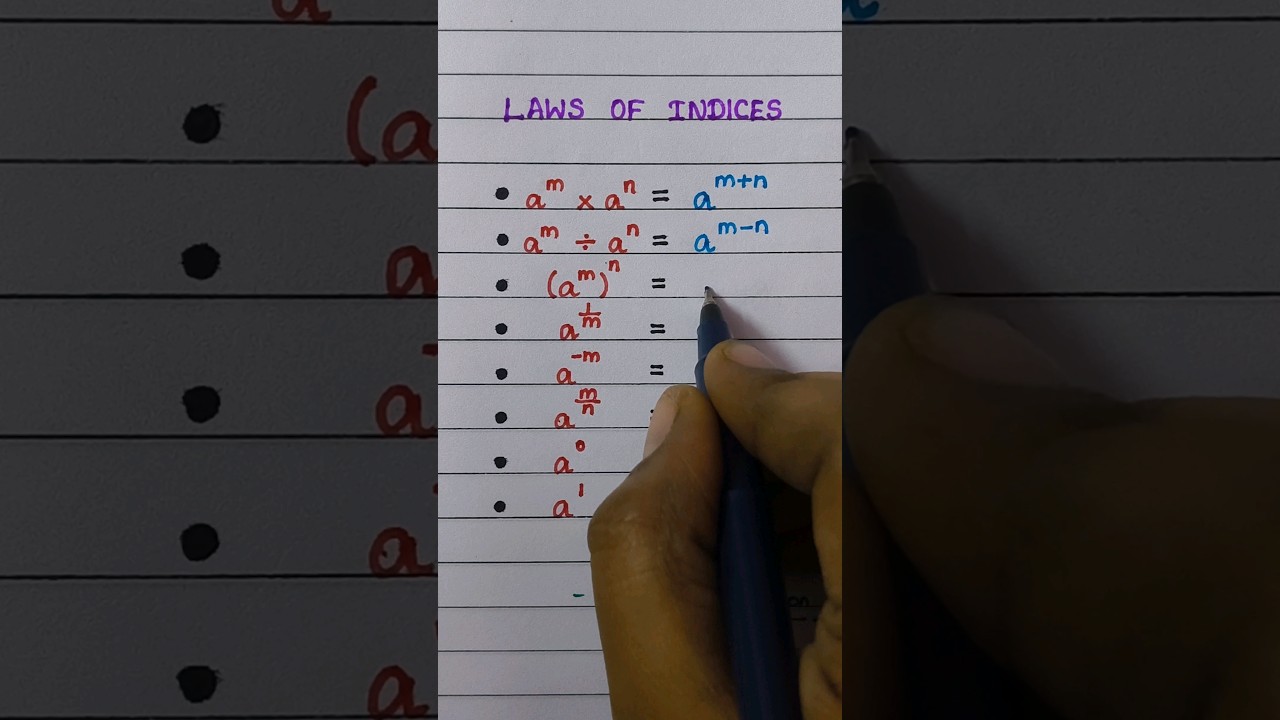 LAWS OF INDICES
• a^m × a^n = a^(m+n)
• a^m ÷ a^n = a^(m-n)
• (a^m)^n =
• a^(1/m) =
• a^(-m) =
• a^(m/n)
• a^0
• a^1